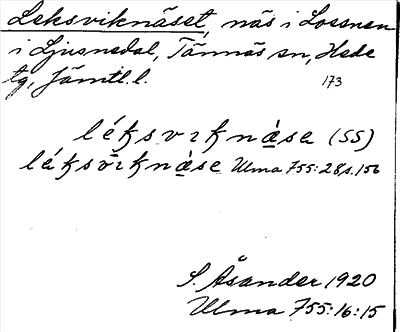 Leksviknäset, näs i Lossnen
i Ljusnedal, Tännäs sn, Hede
tg, Jämtl. l.
173
léksvɪknæ̀se (SS)
léksv̄ɪknæ̀se Ulma 755:28 s. 156
S. Åsander 1920
Ulma 755:16:15